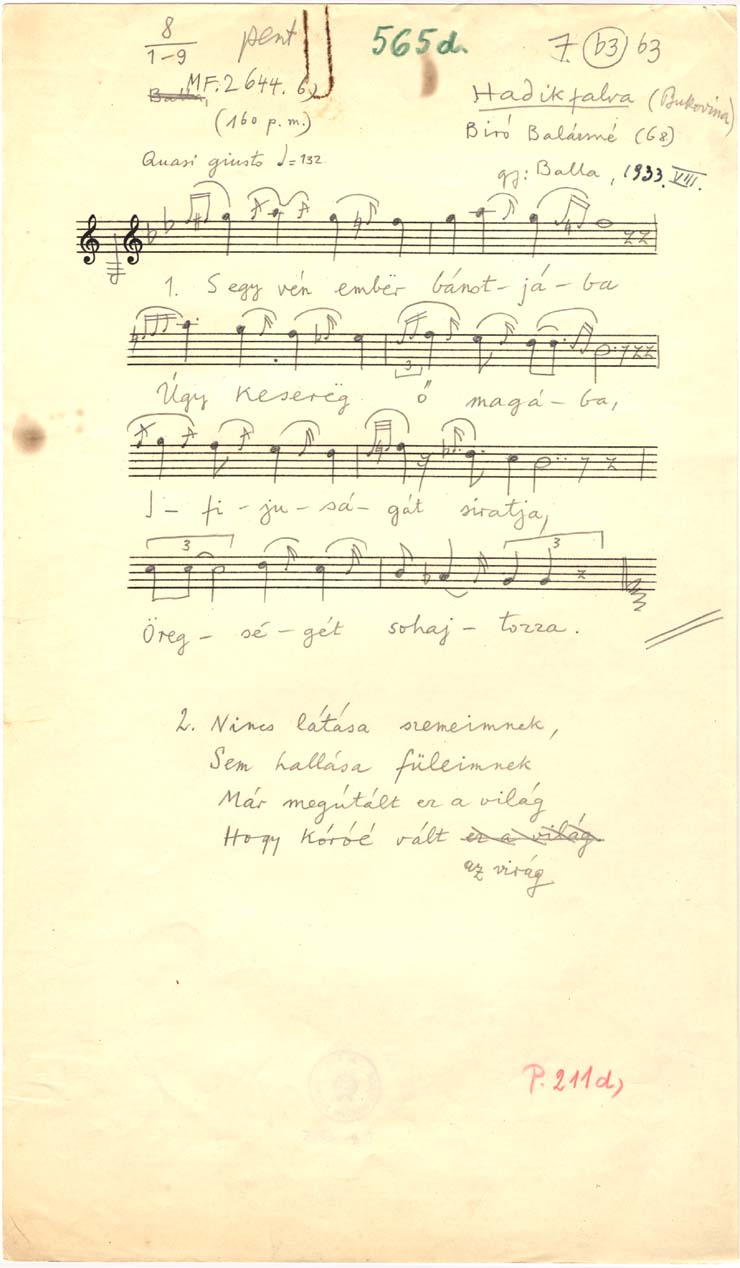 8
1-9
pent
565d.
7. (b3) b3
Balla,
MF. 2644. b)
(160 p. m.)
Hadikfalva (Bukovina)
Biró Balázsné (68)
Quasi giusto ♩=132
gy: Balla, 1933. VIII.
1. S egy vén embër bánot-já-ba
3
Úgy keserëg ő magá-ba,
I-fi-ju-sá-gát siratja,
3
3
Öreg-sé-gét sohaj-tozza.
2. Nincs látása szemeimnek,
Sem hallása füleimnek
Már megútált ez a világ
Hogy kóróé vált ez a világ
az virág
P. 211d)